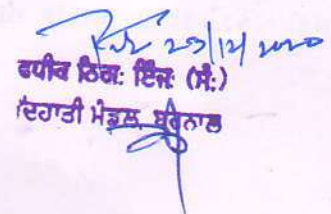 23/12/2020
ਵਧੀਕ ਨਿਗ: ਇੰਜ: (ਸੰ:)
ਦਿਹਾਤੀ ਮੰਡਲ, ਬਰਨਾਲ